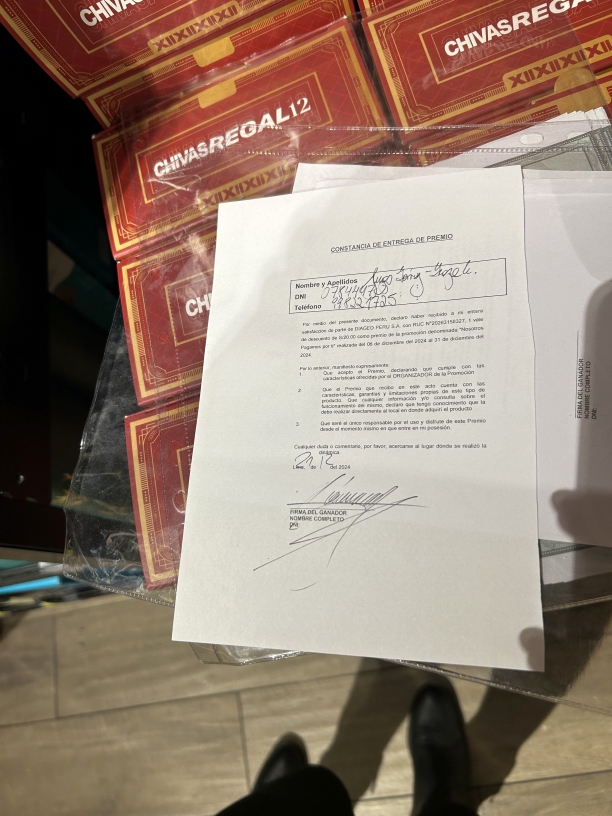 CHIVAS REGAL
XIIXIIXIIXI
CHIVAS REGAL
XIIXIIXI
CHIVAS REGAL 12
XIIXIIXIIXII
CH
CONSTANCIA DE ENTREGA DE PREMIO
Nombre y Apellidos
DNI
Teléfono
Por medio del presente documento, declaro haber recibido a mi entera
satisfacción de parte de DIAGEO PERU S.A. con RUC N°20262156327, 1 vale
de descuento de S/20.00 como premio de la promoción denominada "Nosotros
Pagamos por ti" realizada del 06 de diciembre del 2024 al 31 de diciembre del
2024.
Por lo anterior, manifiesto expresamente:
1. Que acepto el Premio, declarando que cumple con las
características ofrecidas por el ORGANIZADOR de la Promoción
2. Que el Premio que recibo en este acto cuenta con las
características, garantías y limitaciones propias de este tipo de
producto. Que cualquier información y/o consulta sobre el
funcionamiento del mismo, declaro que tengo conocimiento que la
debo realizar directamente al local en donde adquirí el producto
3. Que seré el único responsable por el uso y disfrute de este Premio
desde el momento mismo en que entre en mi posesión.
Cualquier duda o comentario, por favor, acercarse al lugar dónde se realizó la
dinámica.
Lima, de 12 del 2024
FIRMA DEL GANADOR
NOMBRE COMPLETO
DNI:
FIRMA DEL GANADOR
NOMBRE COMPLETO
DNI: